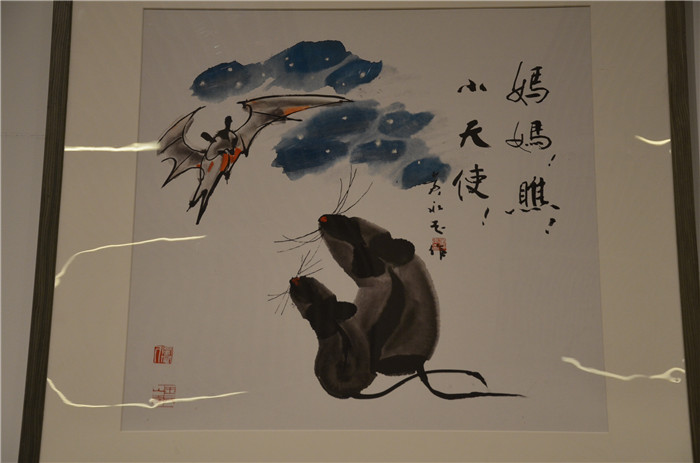 妈妈！瞧！
小天使！
黄永玉作